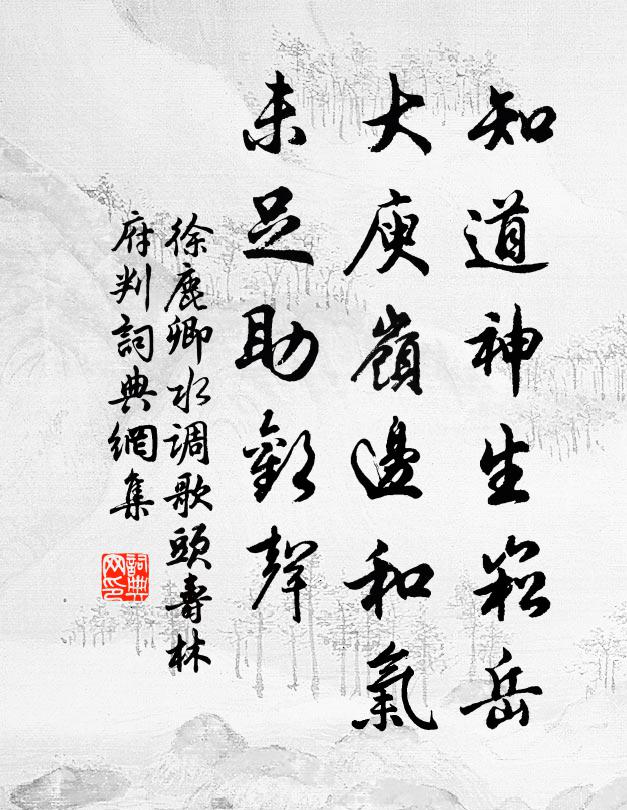 知道神生崧岳
大庾嶺邊和氣
未足助歡聲
徐鹿卿水调歌頭壽林
府判詞典網集
詞典
网印